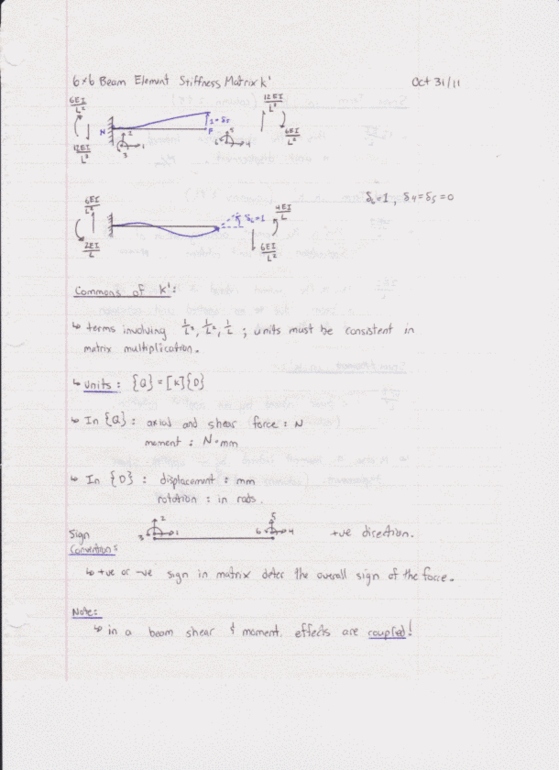 6x6 Beam Element Stiffness Matrix k'
Oct 31/11
6EI/L²
12EI/L³
N
1=δ5
F
2
1
3
5
6
4
12EI/L³
6EI/L²
δ6=1, δ4=δ5=0
6EI/L²
2EI/L
δ6=1
4EI/L
6EI/L²
Commons of k':
↳ terms involving 1/L³, 1/L², 1/L ; units must be consistent in
matrix multiplication.
↳ units: {Q} = [K]{D}
↳ In {Q}: axial and shear force : N
moment : N·mm
↳ In {D} : displacement : mm
rotation : in rads.
Sign
Convention:
2
3
1
5
6
4
+ve direction.
↳ +ve or -ve sign in matrix deter the overall sign of the force.
Note:
↳ in a beam shear & moment effects are coupled!